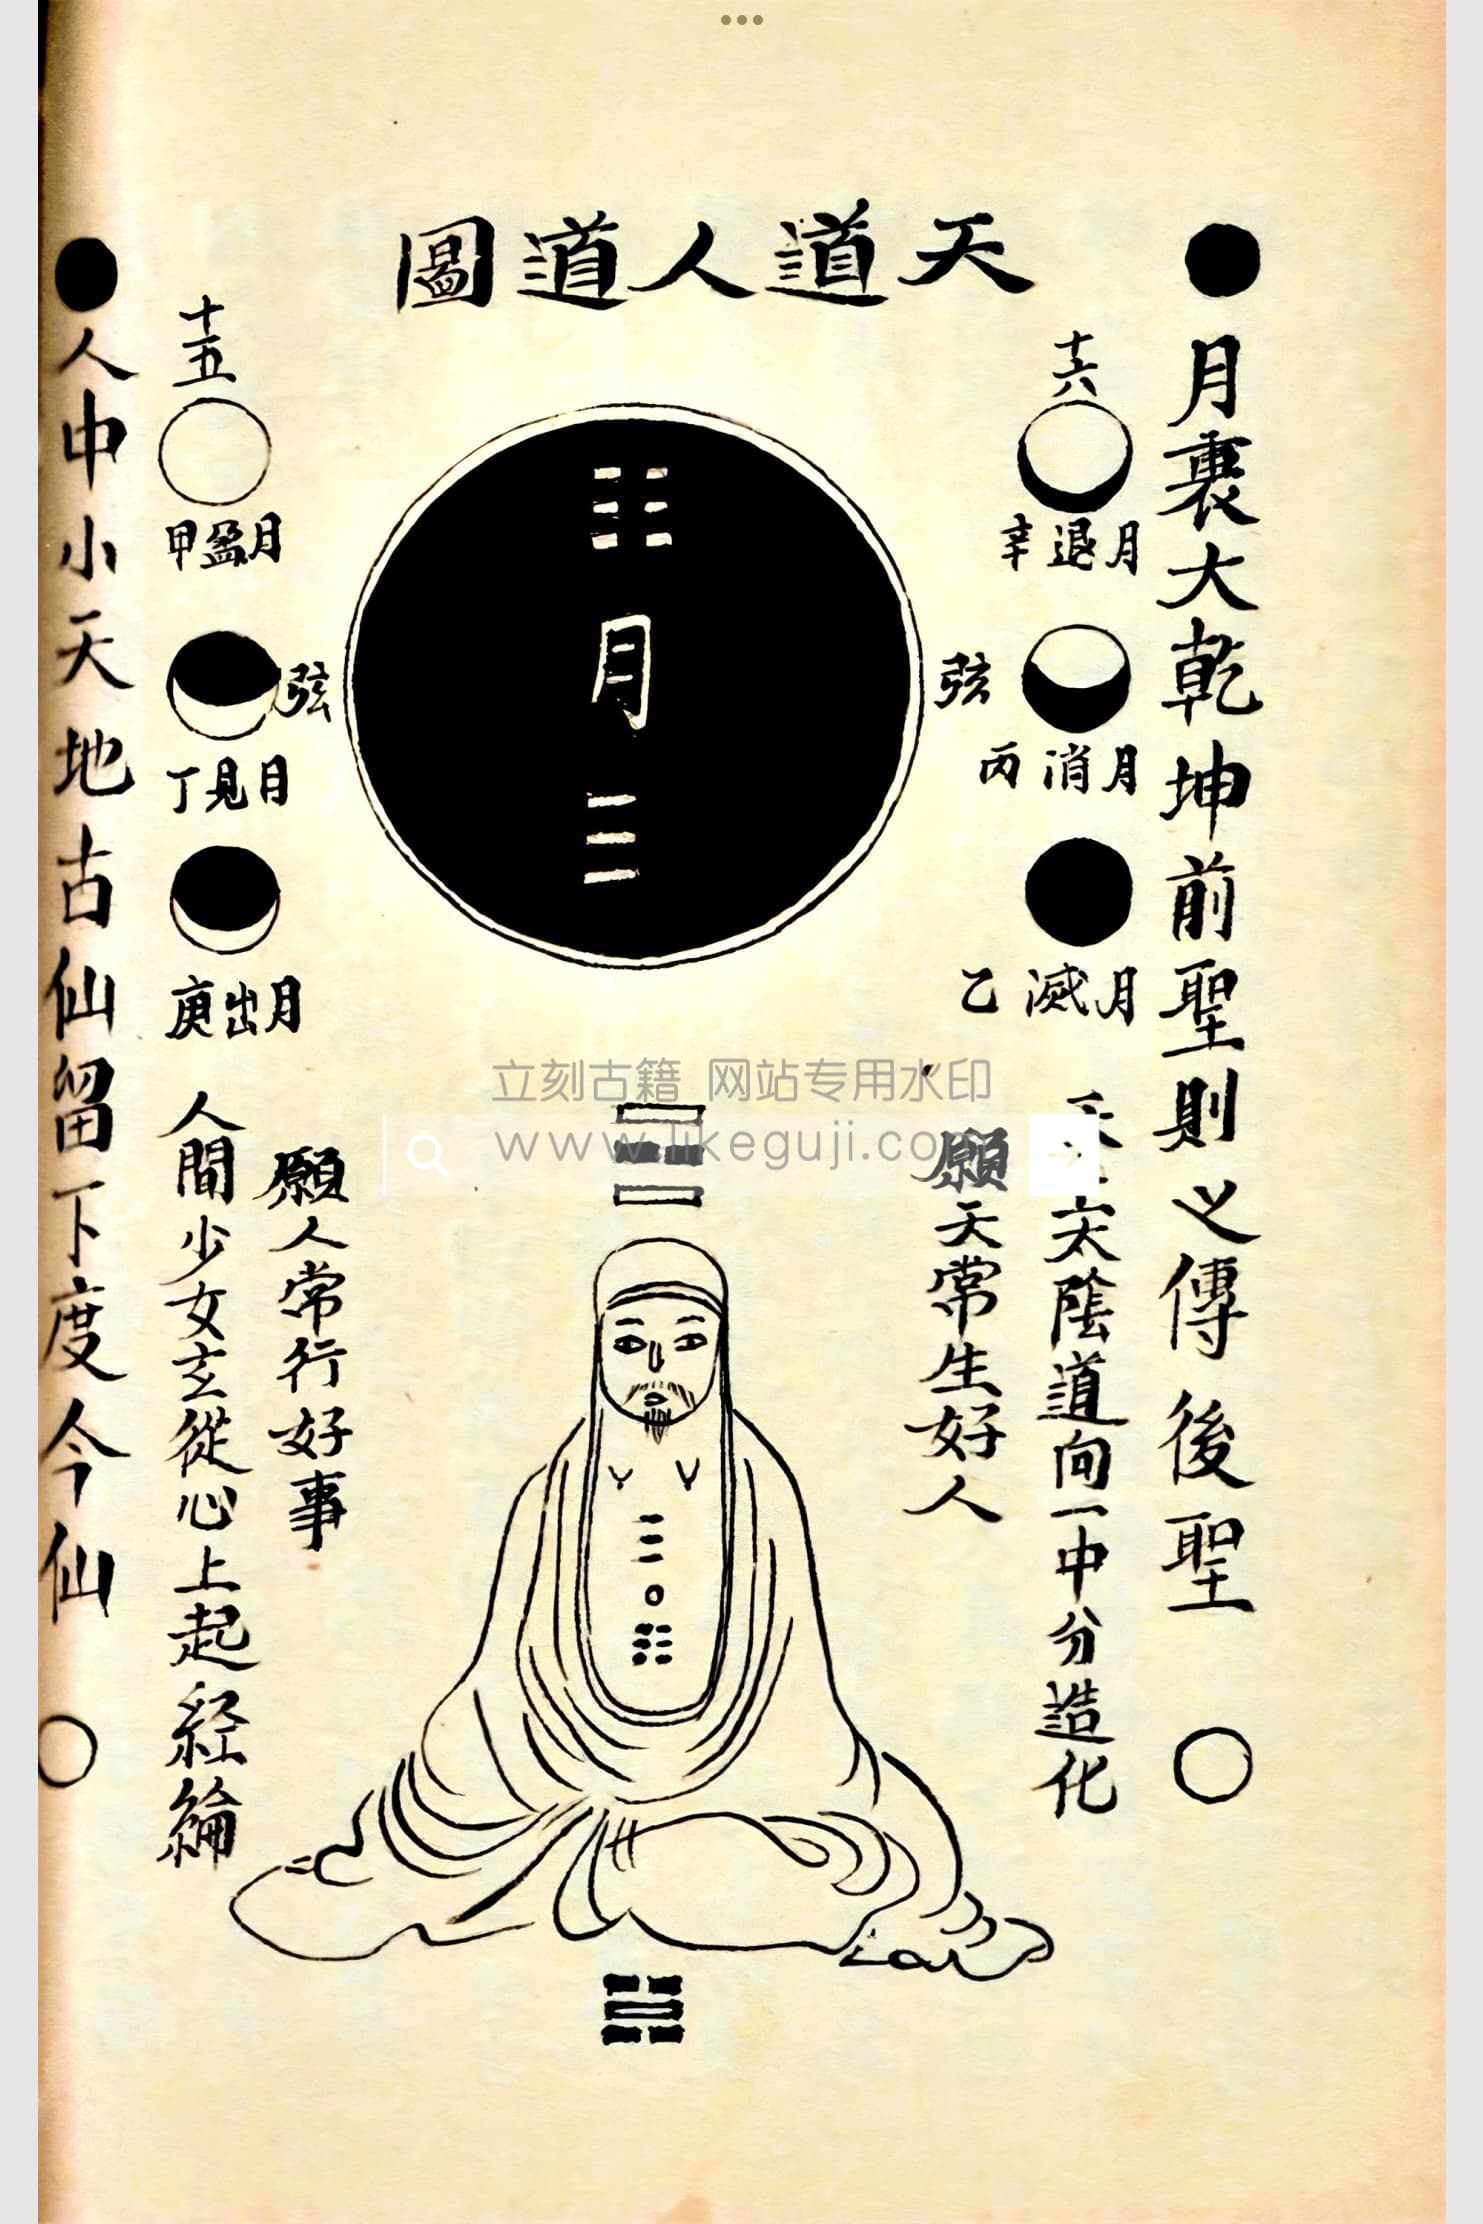 天道人道圖
月裏大乾坤前聖則之傳後聖
十六
月退辛
弦
月消丙
月滅乙
太陰道向一中分造化
願天常生好人
月
十五
月盈甲
弦
月見丁
月出庚
願人常行好事
人間少女玄從心上起經綸
人中小天地古仙留下度今仙
立刻古籍 网站专用水印
www.likeguji.com